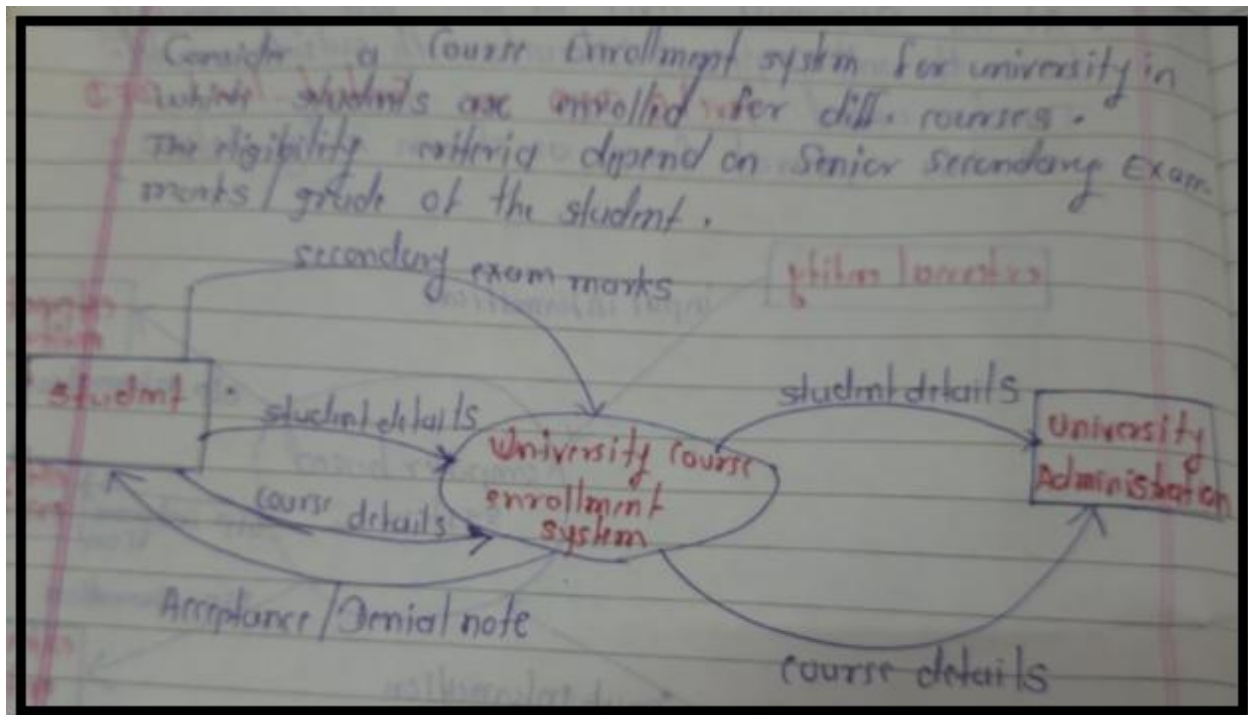 Consider a Course Enrollment system for university in
which students are enrolled for diff. courses.
The eligibility criteria depend on Senior secondary Exam
marks / grade of the student.
secondary exam marks
student
student details
course details
Acceptance / Denial note
University course
enrollment
system
student details
University
Administration
course details